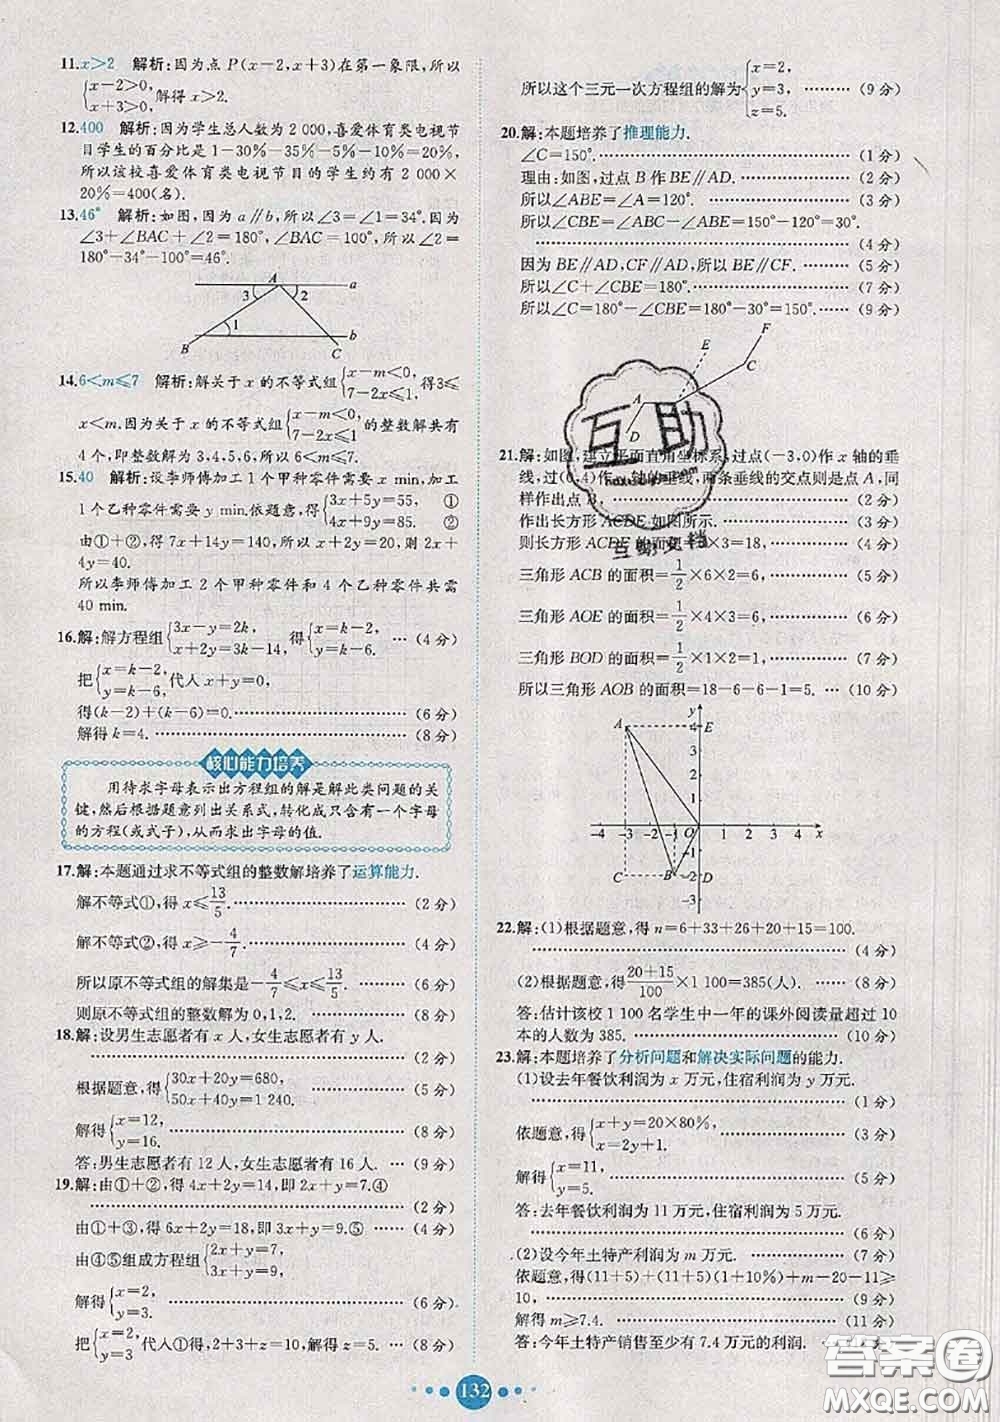 11.x>2 解析:因为点 P(x-2,x+3)在第一象限,所以
{x-2>0, x+3>0, 解得 x>2.
12.400 解析:因为学生总人数为 2 000,喜爱体育类电视节
目学生的百分比是 1-30%-35%-5%-10%=20%,
所以该校喜爱体育类电视节目的学生约有 2 000×
20%=400(名).
13.46° 解析:如图,因为 a∥b,所以∠3=∠1=34°.因为
∠3+∠BAC+∠2=180°,∠BAC=100°,所以∠2=
180°-34°-100°=46°.
A a
3 2
1 b
B C
14.6<m≤7 解析:解关于 x 的不等式组{x-m<0, 7-2x≤1, 得3≤
x<m.因为关于 x 的不等式组{x-m<0, 7-2x≤1 的整数解共有
4个,即整数解为 3,4,5,6,所以 6<m≤7.
15.40 解析:设李师傅加工 1 个甲种零件需要 x min,加工
1 个乙种零件需要 y min.依题意,得{3x+5y=55, ① 4x+9y=85. ②
由①+②,得 7x+14y=140,所以 x+2y=20,所以 2x+
4y=40.
所以李师傅加工 2 个甲种零件和 4 个乙种零件共需
40 min.
16.解:解方程组{3x-y=2k, x+y=3k-14, 得{x=k-2, y=k-6. … (4 分)
把{x=k-2, y=k-6,代入 x+y=0,
得(k-2)+(k-6)=0. (6 分)
解得 k=4. (8 分)
核心能力培养
用待求字母表示出方程组的解是解此类问题的关
键,然后根据题意列出关系式,转化成只含有一个字母
的方程(或式子),从而求出字母的值.
17.解:本题通过求不等式组的整数解培养了运算能力.
解不等式①,得 x≤13/5. (2 分)
解不等式②,得 x≥-4/7. (4 分)
所以原不等式组的解集是-4/7≤x≤13/5. (6 分)
则原不等式组的整数解为 0,1,2. (8 分)
18.解:设男生志愿者有 x 人,女生志愿者有 y 人.
(2 分)
根据题意,得{30x+20y=680, 50x+40y=1 240. (5 分)
解得{x=12, y=16. (8 分)
答:男生志愿者有 12 人,女生志愿者有 16 人. … (9 分)
19.解:由①+②,得 4x+2y=14,即 2x+y=7.④
(2 分)
由①+③,得 6x+2y=18,即 3x+y=9.⑤ (4 分)
由④⑤组成方程组{2x+y=7, 3x+y=9.
解得{x=2, y=3. (6 分)
把{x=2, y=3 代入①得,2+3+z=10,解得 z=5. (8 分)
所以这个三元一次方程组的解为{x=2, y=3, z=5. (9 分)
20.解:本题培养了推理能力.
∠C=150°. (1 分)
理由:如图,过点 B 作 BE∥AD. (2 分)
所以∠ABE=∠A=120°. (3 分)
所以∠CBE=∠ABC-∠ABE=150°-120°=30°.
(4 分)
因为 BE∥AD,CF∥AD,所以 BE∥CF. (5 分)
所以∠C+∠CBE=180°. (7 分)
所以∠C=180°-∠CBE=180°-30°=150°. (9 分)
F
E
C
A
D
互助
互助文档
21.解:如图,建立平面直角坐标系,过点(-3,0)作 x 轴的垂
线,过(0,4)作 轴的垂线,两条垂线的交点则是点 A,同
样作出点 B. (2 分)
作出长方形 ACDE 如图所示.
则长方形 ACDE 的面积= ×3=18. (4 分)
三角形 ACB 的面积=1/2×6×2=6, (5 分)
三角形 AOE 的面积=1/2×4×3=6, (6 分)
三角形 BOD 的面积=1/2×1×2=1, (7 分)
所以三角形 AOB 的面积=18-6-6-1=5. … (10 分)
y
A 4 E
3
2
1
-4 -3 -2 -1 O 1 2 3 4 x
-1
C B -2 D
-3
22.解:(1)根据题意,得 n=6+33+26+20+15=100.
(4 分)
(2)根据题意,得20+15/100×1 100=385(人). (8 分)
答:估计该校 1 100 名学生中一年的课外阅读量超过 10
本的人数为 385. (10 分)
23.解:本题培养了分析问题和解决实际问题的能力.
(1)设去年餐饮利润为 x 万元,住宿利润为 y 万元.
(1 分)
依题意,得{x+y=20×80%, x=2y+1. (3 分)
解得{x=11, y=5.
答:去年餐饮利润为 11 万元,住宿利润为 5 万元.
(6 分)
(2)设今年土特产利润为 m 万元. (7 分)
依题意,得(11+5)+(11+5)(1+10%)+m-20-11≥
10, (9 分)
解得 m≥7.4. (11 分)
答:今年土特产销售至少有 7.4 万元的利润.
132
答案圈
MXQE.COM